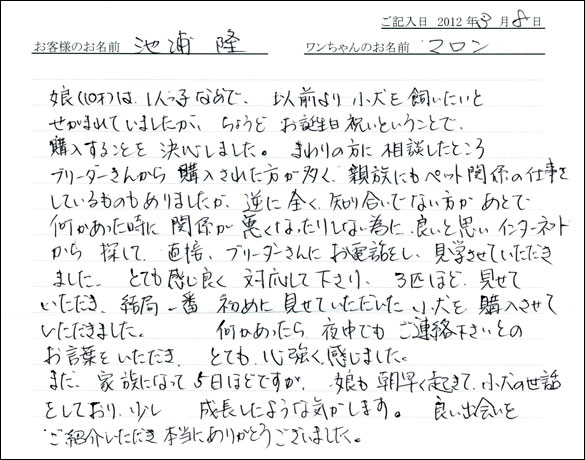 ご記入日 2012年3月8日
お客様のお名前 池浦 隆 ワンちゃんのお名前 マロン
娘(10才)は、1人っ子なので、以前より小犬を飼いたいと
せがまれていましたが、ちょうどお誕生日祝いということで、
購入することを決心しました。まわりの方に相談したところ
ブリーダーさんから購入された方が多く、親族にもペット関係の仕事を
しているものもありましたが、逆に全く、知り合いでない方があとで
何かあった時に関係が悪くなったりしない為に、良いと思いインターネット
から探して、直接、ブリーダーさんにお電話をし、見学させていただき
ました。とても感じ良く対応して下さり、3匹ほど、見せて
いただき、結局一番初めに見せていただいた小犬を購入させて
いただきました。何かあったら、夜中でもご連絡下さいとの
お言葉をいただき、とても、心強く感じました。
まだ、家族になって5日ほどですが、娘も朝早く起きて、小犬の世話
をしており、少し成長したような気がします。良い出会いを
ご紹介いただき本当にありがとうございました。